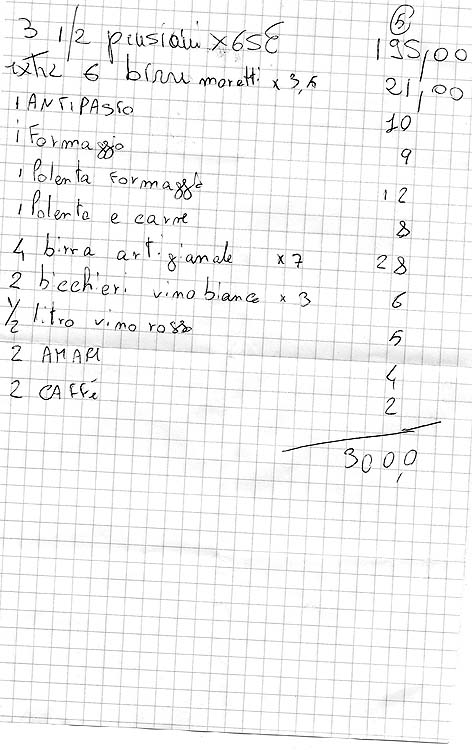 5
3 1/2 pensioni x 65€ 195,00
extre 6 birre moretti x 3,5 21,00
1 ANTIPASTO 10
1 Formaggio 9
1 Polenta Formaggi 12
1 Polenta e carne 8
4 birra artigianale x 7 28
2 bicchieri vino bianco x 3 6
1/2 litro vino rosso 5
2 AMARI 4
2 CAFFÈ 2
300,0